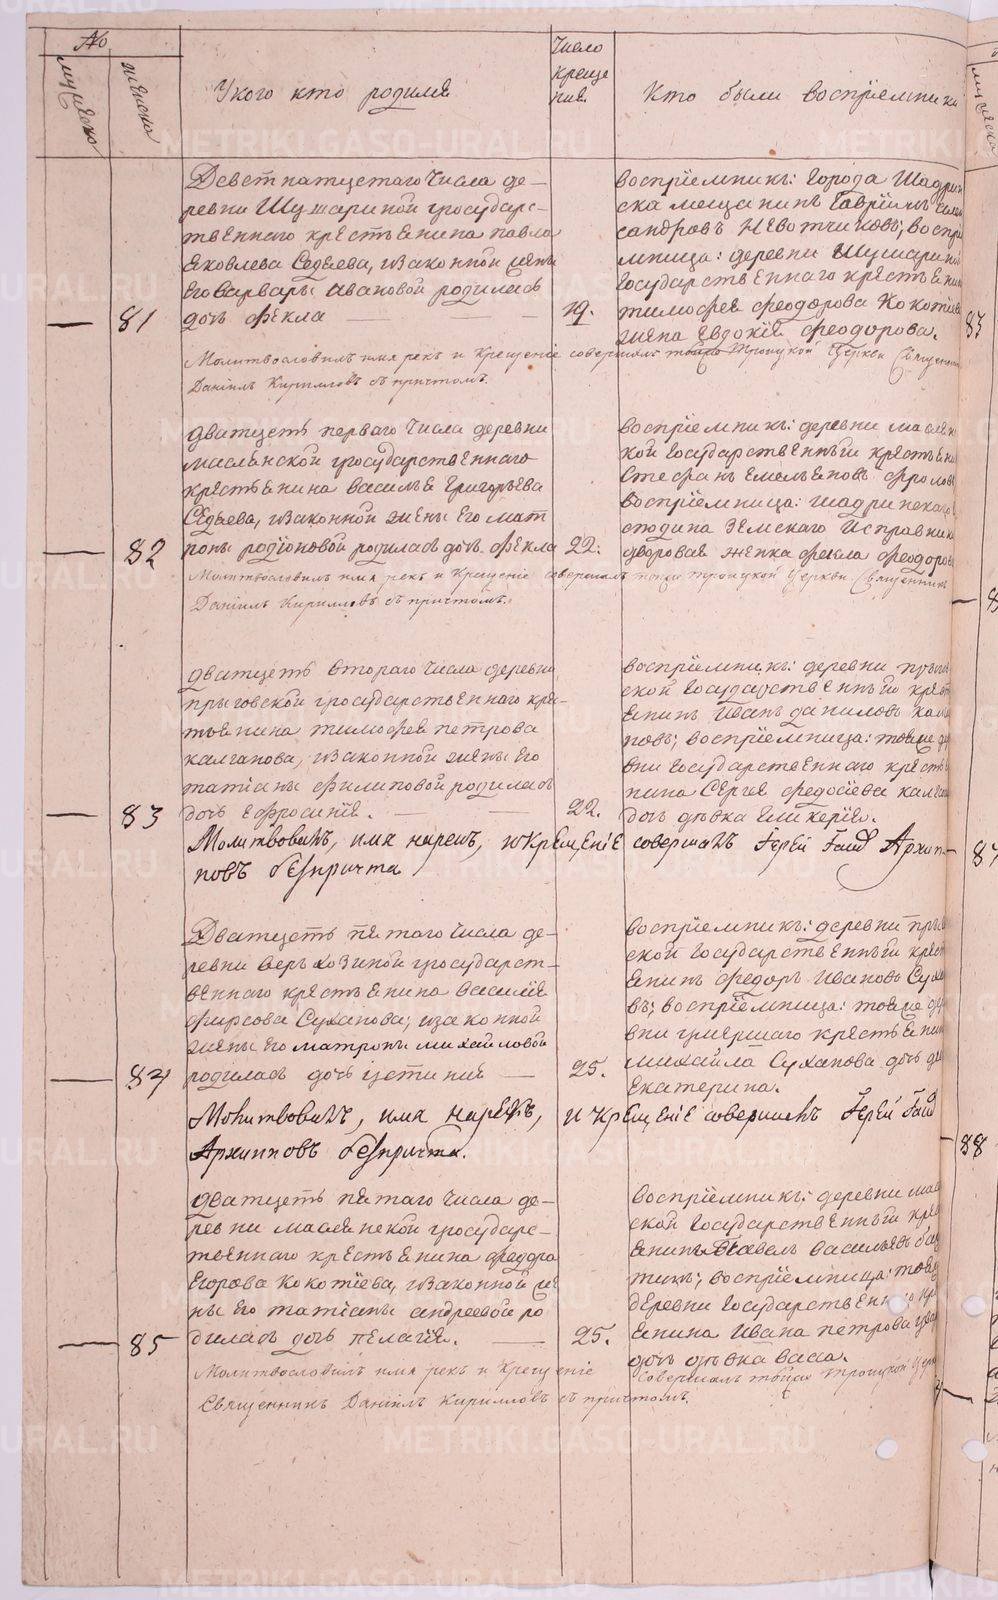 №
мужеска
женска
У кого кто родился
Число
креще
ния.
Кто были восприемники
Деветнатцетаго числа де-
ревни Шушариной государс-
твеннаго крестьянина павла
яковлева Седяева, изаконной жены
Его варвары ивановой родилась
дочь фекла
81
19.
восприемникъ: города Шадрин
ска мещанинъ Гавриилъ
сандровъ Невотчиковъ; воспри
мница: деревни Шушарин
государственнаго крестьянин
тимофея феодорова Кокотеева
жена Евдокия феодорова.
Молитвословилъ имя рекъ и Крещение совершалъ тояже Троицкой Церкви Священник
Даниилъ Кирилловъ съ причтомъ.
дватцеть перваго числа деревни
маслянской государственнаго
крестьянина василья григорьева
Седяева, изаконной жены Его мат
роны родионовой родилась дочь фекла
82
22.
восприемникъ: деревни маслян
кой государственный крестьяни
Стефанъ Емельяновъ фролов
восприемница: шадринскаго
сподина Земскаго Исправник
дворовая женка фекла феодоров
Молитвословилъ имя рекъ и Крещение совершалъ тояже троицкой Церкви Священникъ
Даниилъ Кирилловъ съ причтомъ.
дватцеть втораго числа деревни
прыговской государственнаго крес-
тьянина тимофея петрова
калганова, изаконной жены Его
татианы филиповой родилась
дочь Ефросиния.
83
22.
восприемникъ: деревни прыгов
ской государственный крест
янинъ Иванъ даниловъ калга
новъ; восприемница: тояже де
вни государственнаго крестья
нина Сергея федосеева калган
дочь девка Гликерия.
Молитвовалъ, имя нарекъ, и Крещение совершалъ Иерей Архип-
повъ безпричта
Дватцеть пятаго числа де-
ревни верхозиной государст-
веннаго крестьянина василия
фирсова Суханова, изаконной
жены Его матроны михайловой
родилась дочь устиния
84
25.
восприемникъ: деревни
ской государственный крест
янинъ федоръ Ивановъ Суха
въ; восприемница: тояже де
вни умершаго крестьянина
михайла Суханова дочь де
Екатерина.
Молитвовалъ, имя нарекъ, и Крещение совершалъ Иерей
Архипповъ безпричта.
дватцеть пятаго числа де-
ревни маслянской государс-
твеннаго крестьянина федора
Егорова Кокотеева, изаконной же
ны Его татианы андреевой ро
дилась дочь пелагия.
85
25.
восприемникъ: деревни мас
ской государственный крес
янинъ Павелъ васильевъ
тинъ; восприемница: тояже
деревни государственнаго кре
янина Ивана петрова
дочь девка васса.
Молитвословилъ имя рекъ и Крещение
совершалъ тояже троицкой Церк
Священникъ Даниилъ Кирилловъ съ причтомъ.
мужеска
83
87
88
METRIKI.GASO-URAL.RU